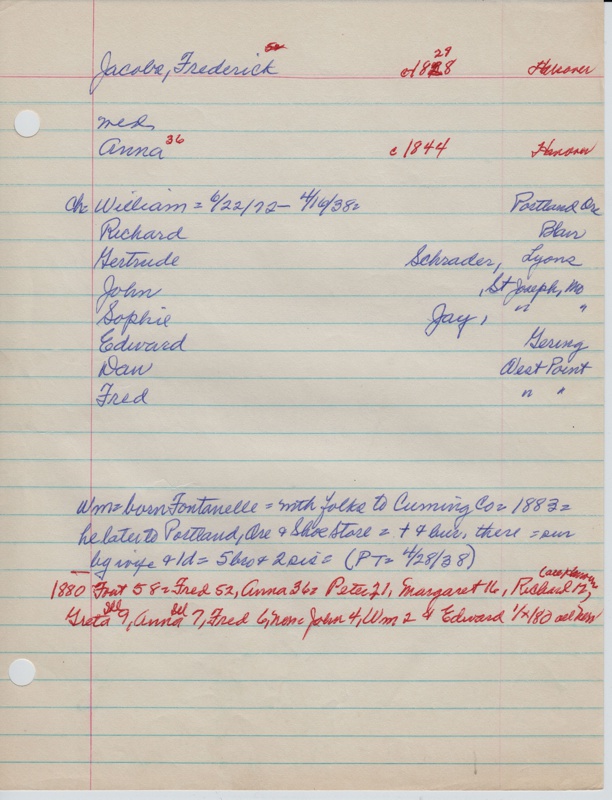 52 29
Jacobs, Frederick c1828 Hanover
med
Anna 36 c 1844 Hanover
Ch= William = 6/22/72 - 4/16/38= Portland Ore
Richard Blair
Gertrude Schrader, Lyons
John , St Joseph, Mo
Sophie Jay, " "
Edward Gering
Dan West Point
Fred " "
Wm = born Fontanelle = with folks to Cuming Co = 1883 =
he later to Portland, Ore & Shoe Store = + & bur. there = sur
by wife & 1d = 5 bro & 2 sis = (PT = 4/28/38)
1880 Font 58 = Fred 52, Anna 36 = Peter 21, Margaret 16, Richard 12,
Greta 9, Anna 7, Fred 6, John 4, Wm 2 & Edward 1/180 all